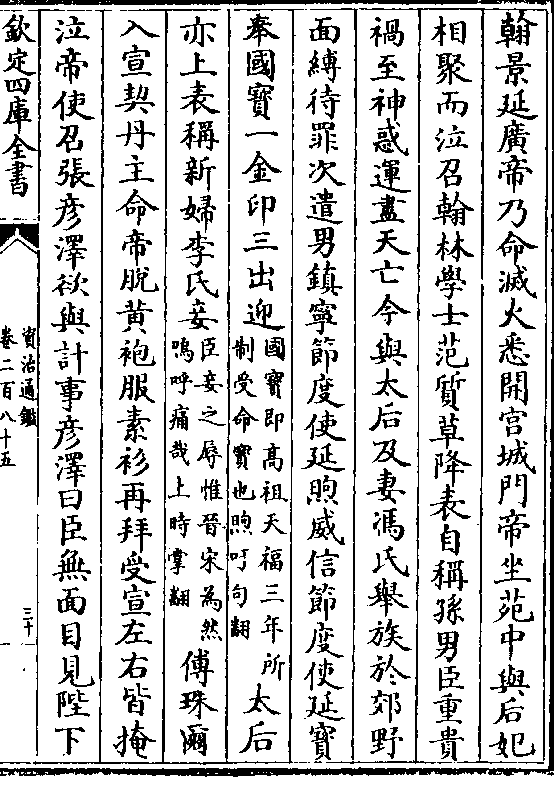 翰景延廣帝乃命滅火悉開宮城門帝坐苑中與后妃
相聚而泣召翰林學士范質草降表自稱孫男臣重貴
禍至神惑運盡天亡今與太后及妻馮氏舉族於郊野
面縛待罪次遣男鎮寧節度使延煦威信節度使延寶
奉國寶一金印三出迎國寶即髙祖天福三年所制受命寶也煦吁句翻太后
亦上表稱新婦李氏妾臣妾之辱惟晉宋為然嗚呼痛哉上時掌翻傅珠爾
入宣契丹主命帝脫黄袍服素衫再拜受宣左右皆掩
泣帝使召張彦澤欲與計事彦澤曰臣無面目見陛下
欽定四庫全書
資治通鑑
卷二百八十五
三十